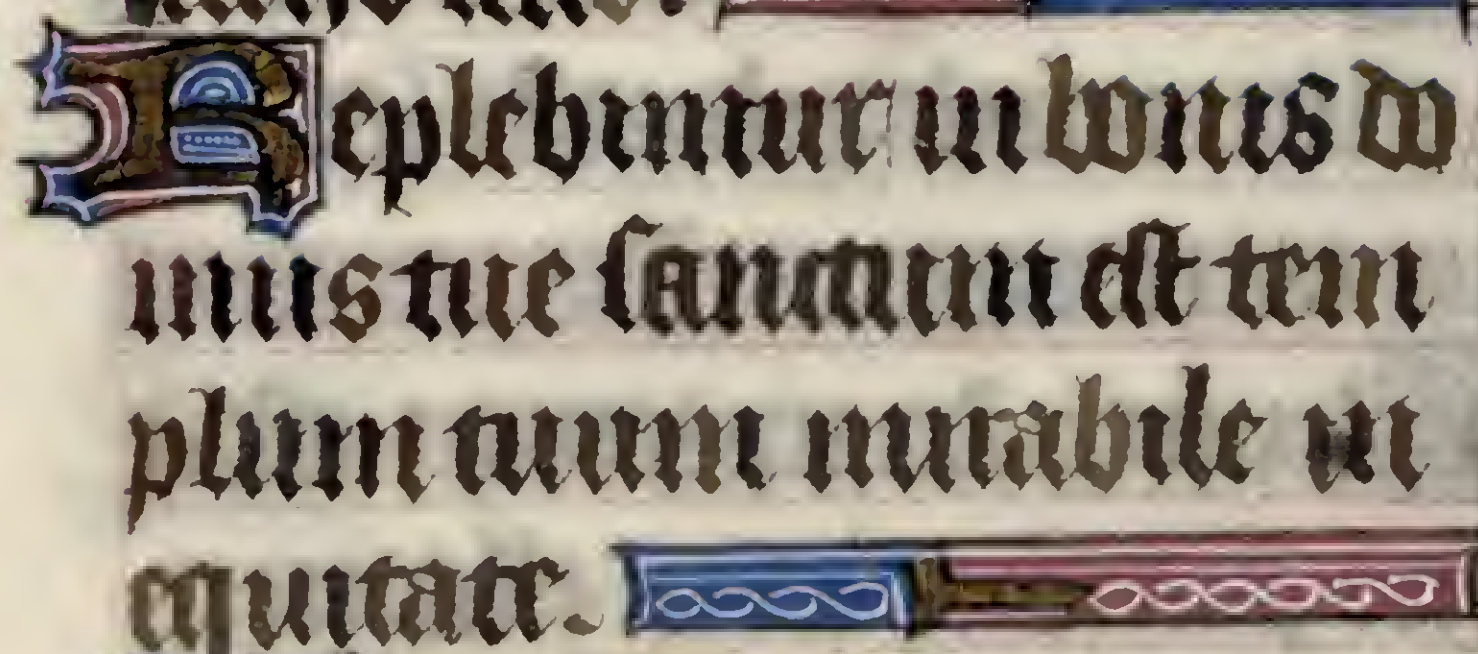 Replebimur in bonis do
mus tue sanctum est tem
plum tuum mirabile in
equitate.